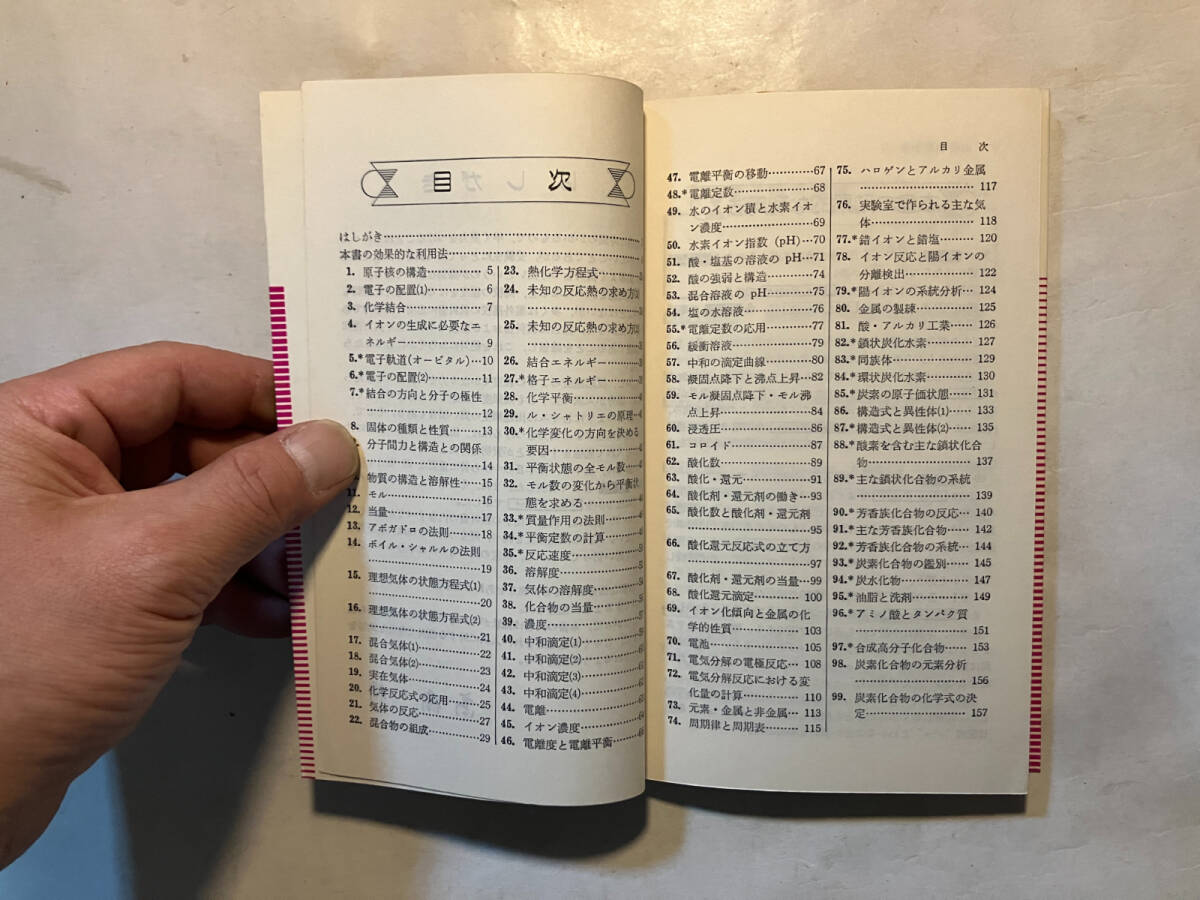 目 次
はしがき
本書の効果的な利用法
1. 原子核の構造 5
2. 電子の配置(1) 6
3. 化学結合 7
4. イオンの生成に必要なエ
ネルギー 9
5.*電子軌道(オービタル) 10
6.*電子の配置(2) 11
7.*結合の方向と分子の極性
12
8. 固体の種類と性質 13
分子間力と構造との関係
14
物質の構造と溶解性 15
11. モル 16
12. 当量 17
13. アボガドロの法則 18
14. ボイル・シャルルの法則
19
15. 理想気体の状態方程式(1)
20
16. 理想気体の状態方程式(2)
21
17. 混合気体(1) 22
18. 混合気体(2) 23
19. 実在気体 24
20. 化学反応式の応用 25
21. 気体の反応 27
22. 混合物の組成 29
23. 熱化学方程式
24. 未知の反応熱の求め方(1)
25. 未知の反応熱の求め方(2)
26. 結合エネルギー
27.*格子エネルギー
28. 化学平衡
29. ル・シャトリエの原理
30.*化学変化の方向を決める
要因
31. 平衡状態の全モル数
32. モル数の変化から平衡状
態を求める
33.*質量作用の法則
34.*平衡定数の計算
35.*反応速度
36. 溶解度
37. 気体の溶解度
38. 化合物の当量
39. 濃度
40. 中和滴定(1)
41. 中和滴定(2)
42. 中和滴定(3)
43. 中和滴定(4)
44. 電離
45. イオン濃度
46. 電離度と電離平衡
目 次
47. 電離平衡の移動 67
48.*電離定数 68
49. 水のイオン積と水素イオ
ン濃度 69
50. 水素イオン指数 (pH) 70
51. 酸・塩基の溶液の pH 71
52. 酸の強弱と構造 74
53. 混合溶液の pH 75
54. 塩の水溶液 76
55.*電離定数の応用 77
56. 緩衝溶液 79
57. 中和の滴定曲線 80
58. 凝固点降下と沸点上昇 82
59. モル凝固点降下・モル沸
点上昇 84
60. 浸透圧 86
61. コロイド 87
62. 酸化数 89
63. 酸化・還元 91
64. 酸化剤・還元剤の働き 93
65. 酸化数と酸化剤・還元剤
95
66. 酸化還元反応式の立て方
97
67. 酸化剤・還元剤の当量 99
68. 酸化還元滴定 100
69. イオン化傾向と金属の化
学的性質 103
70. 電池 105
71. 電気分解の電極反応 108
72. 電気分解反応における変
化量の計算 110
73. 元素・金属と非金属 113
74. 周期律と周期表 115
75. ハロゲンとアルカリ金属
117
76. 実験室で作られる主な気
体 118
77.*錯イオンと錯塩 120
78. イオン反応と陽イオンの
分離検出 122
79.*陽イオンの系統分析 124
80. 金属の製練 125
81. 酸・アルカリ工業 126
82.*鎖状炭化水素 127
83.*同族体 129
84.*環状炭化水素 130
85.*炭素の原子価状態 131
86. 構造式と異性体(1) 133
87.*構造式と異性体(2) 135
88.*酸素を含む主な鎖状化合
物 137
89.*主な鎖状化合物の系統
139
90.*芳香族化合物の反応 140
91.*主な芳香族化合物 142
92.*芳香族化合物の系統 144
93.*炭素化合物の鑑別 145
94.*炭水化物 147
95.*油脂と洗剤 149
96.*アミノ酸とタンパク質
151
97.*合成高分子化合物 153
98. 炭素化合物の元素分析
156
99. 炭素化合物の化学式の決
定 157